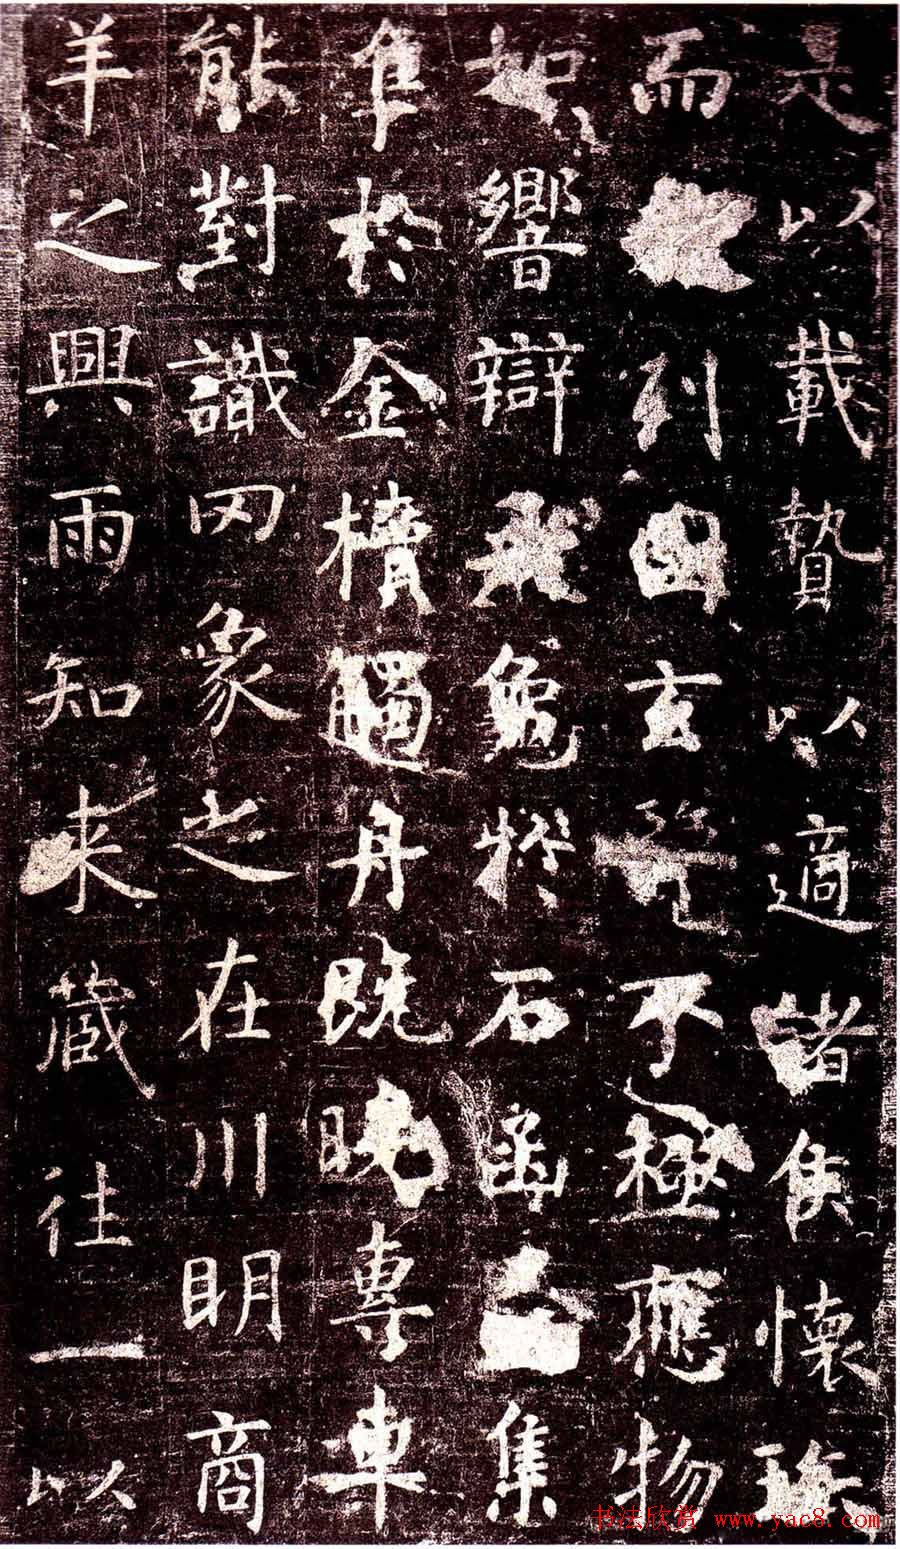 是以載贄以適諸侯懷珎
而列國玄覽不極應物
如響辯飛龜於石函集
隼於金櫝觸舟既曉專車
能對識罔象之在川明商
羊之興雨知來藏往一以
书法欣赏 www.yac8.com